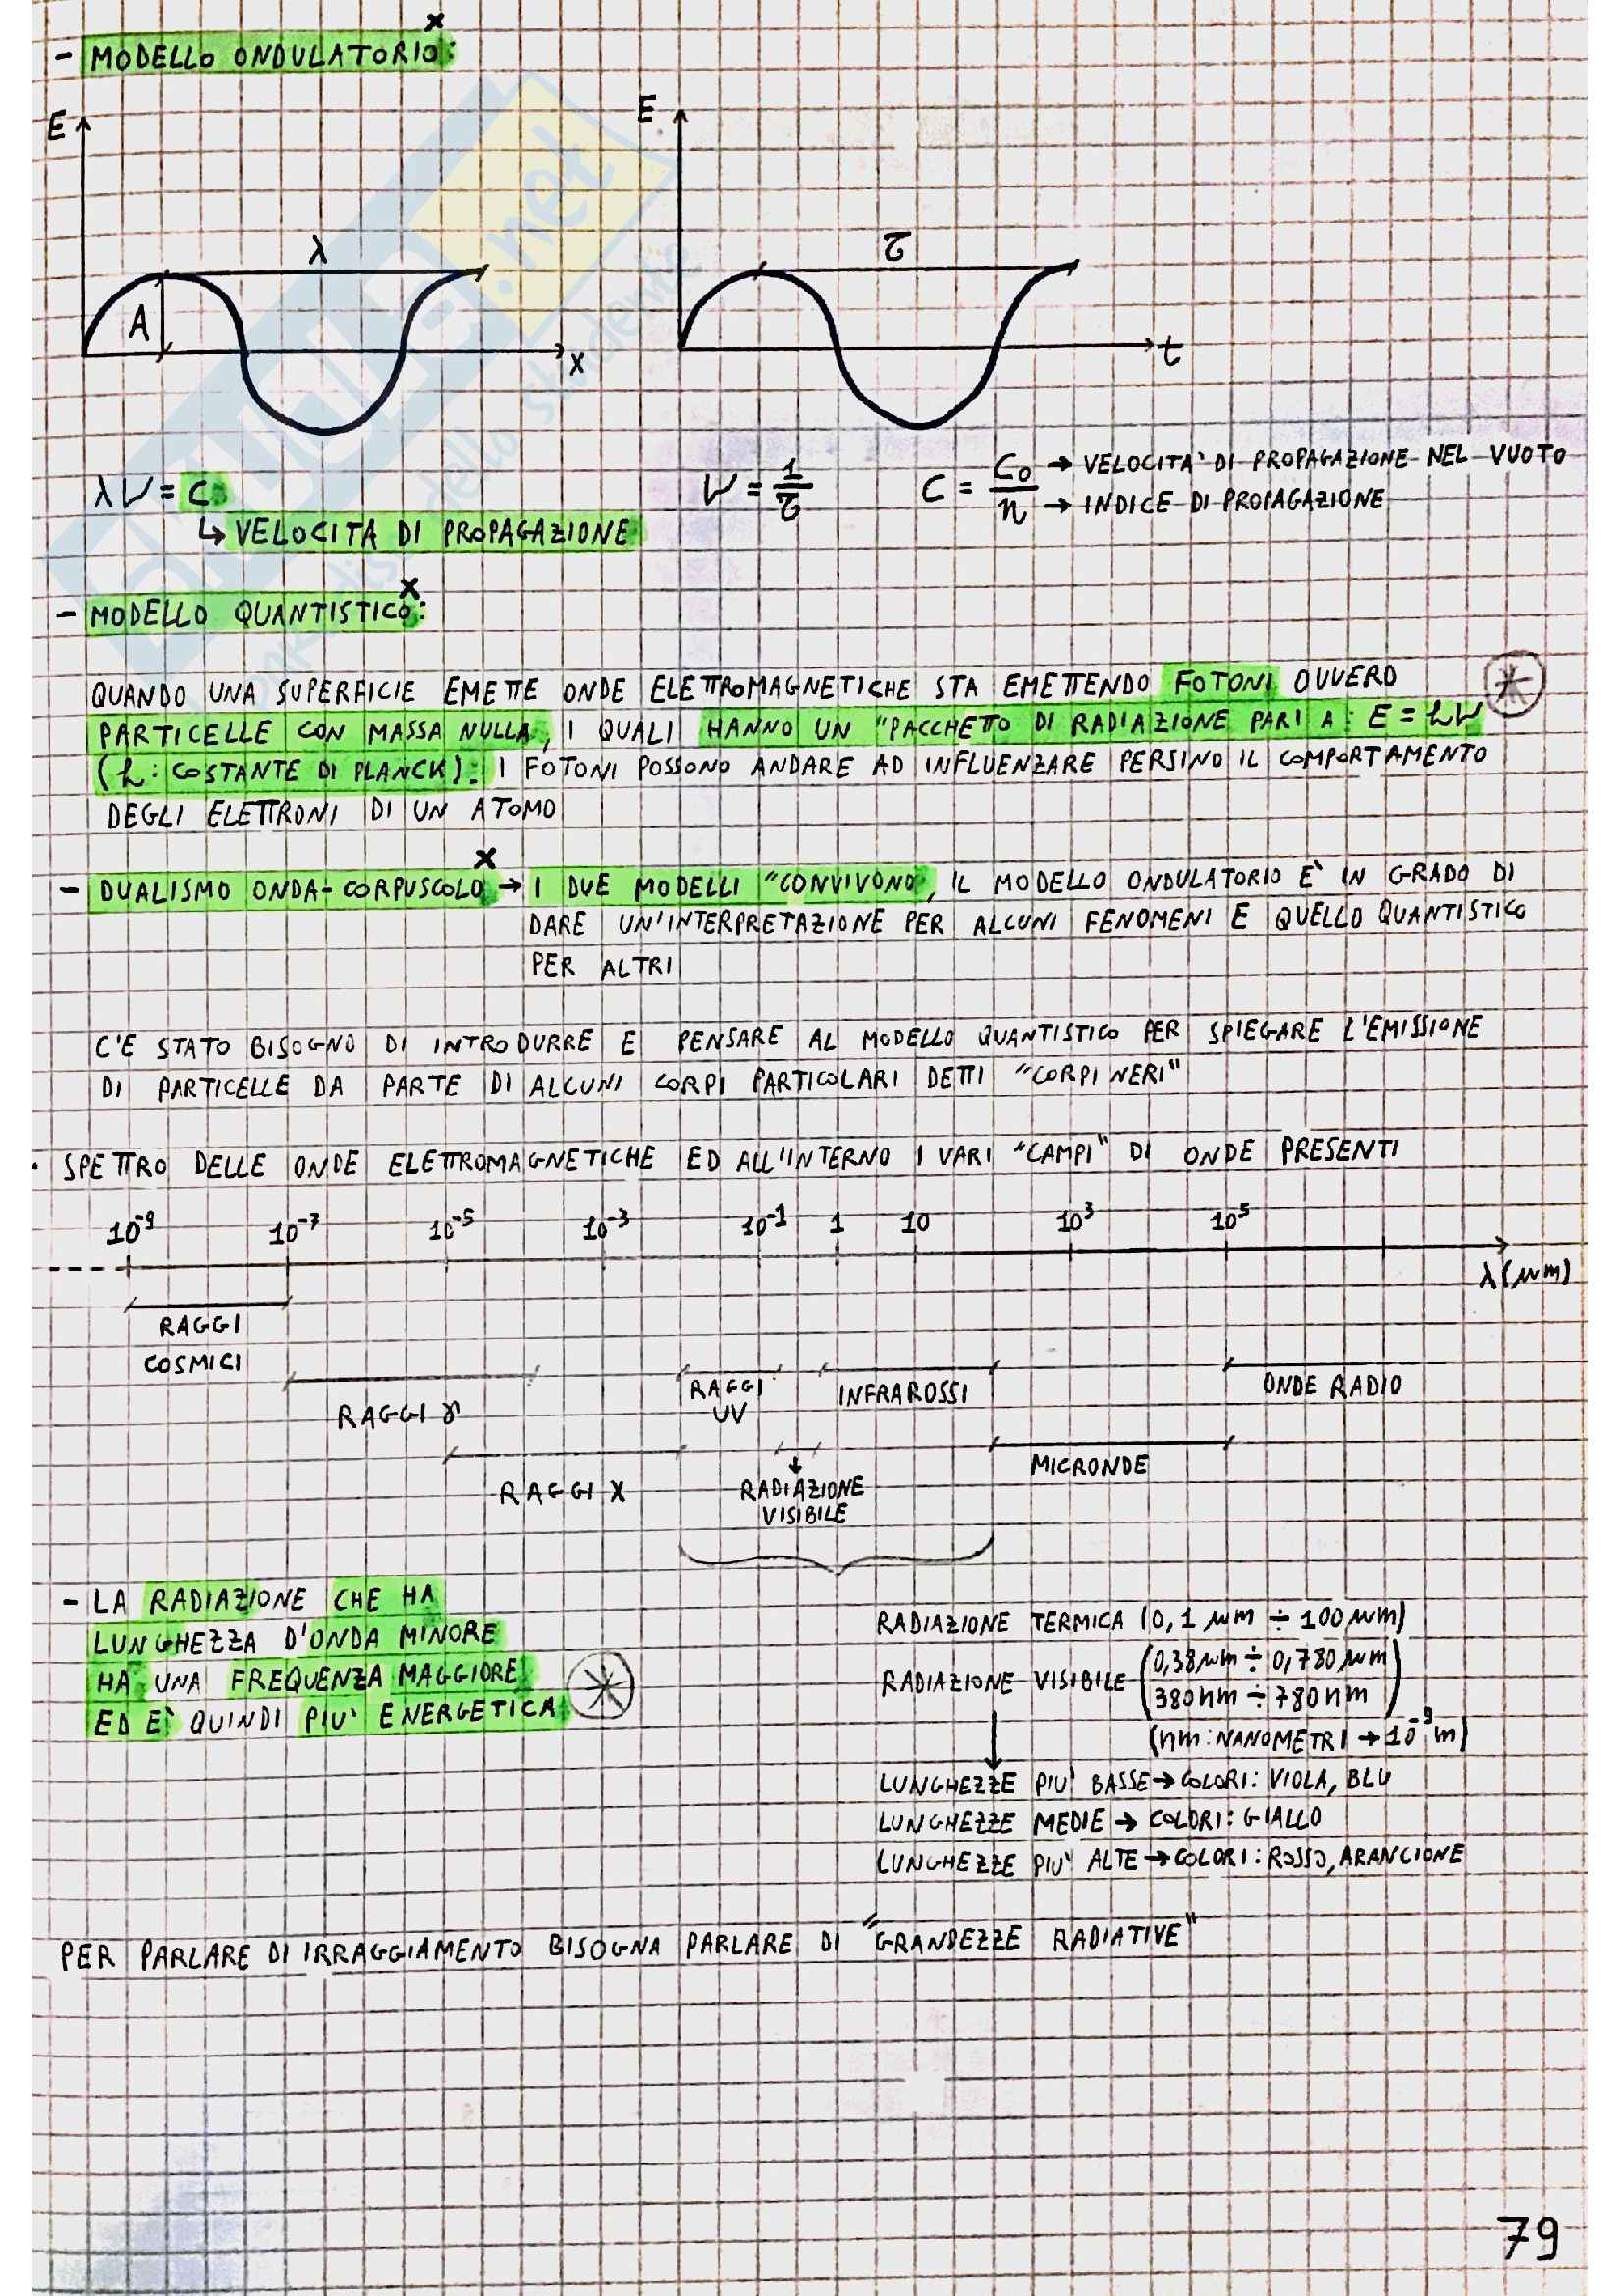 - MODELLO ONDULATORIO:
x
E
E
λ
τ
A
x
t
λν = C
ν = 1/τ
C = C₀/n
→ VELOCITA' DI PROPAGAZIONE NEL VUOTO
→ INDICE DI PROPAGAZIONE
↳ VELOCITA DI PROPAGAZIONE
x
- MODELLO QUANTISTICO:
QUANDO UNA SUPERFICIE EMETTE ONDE ELETTROMAGNETICHE STA EMETTENDO FOTONI OVVERO
PARTICELLE CON MASSA NULLA, I QUALI HANNO UN "PACCHETTO DI RADIAZIONE PARI A: E = hν
(h: COSTANTE DI PLANCK). I FOTONI POSSONO ANDARE AD INFLUENZARE PERSINO IL COMPORTAMENTO
DEGLI ELETTRONI DI UN ATOMO
x
- DUALISMO ONDA-CORPUSCOLO → I DUE MODELLI "CONVIVONO", IL MODELLO ONDULATORIO E' IN GRADO DI
DARE UN'INTERPRETAZIONE PER ALCUNI FENOMENI E QUELLO QUANTISTICO
PER ALTRI
C'E STATO BISOGNO DI INTRODURRE E PENSARE AL MODELLO QUANTISTICO PER SPIEGARE L'EMISSIONE
DI PARTICELLE DA PARTE DI ALCUNI CORPI PARTICOLARI DETTI "CORPI NERI"
· SPETTRO DELLE ONDE ELETTROMAGNETICHE ED ALL'INTERNO I VARI "CAMPI" DI ONDE PRESENTI
10⁻⁹ 10⁻⁷ 10⁻⁵ 10⁻³ 10⁻¹ 1 10 10³ 10⁵
λ(μm)
RAGGI
COSMICI
RAGGI γ
RAGGI
UV
INFRAROSSI
ONDE RADIO
RAGGI X
RADIAZIONE
VISIBILE
MICRONDE
- LA RADIAZIONE CHE HA
LUNGHEZZA D'ONDA MINORE
HA UNA FREQUENZA MAGGIORE
ED E' QUINDI PIU' ENERGETICA
RADIAZIONE TERMICA (0,1 μm ÷ 100 μm)
RADIAZIONE VISIBILE (0,38 μm ÷ 0,780 μm
380 nm ÷ 780 nm)
(nm: NANOMETRI → 10⁻⁹ m)
LUNGHEZZE PIU' BASSE → COLORI: VIOLA, BLU
LUNGHEZZE MEDIE → COLORI: GIALLO
LUNGHEZZE PIU' ALTE → COLORI: ROSSO, ARANCIONE
PER PARLARE DI IRRAGGIAMENTO BISOGNA PARLARE DI "GRANDEZZE RADIATIVE"
79